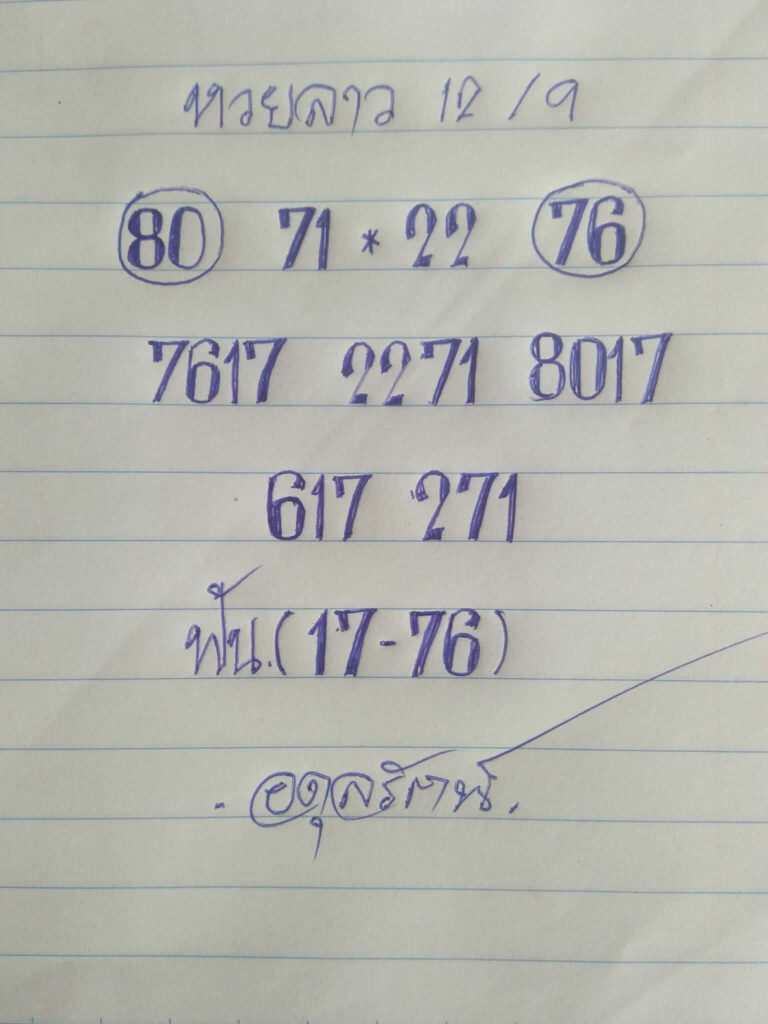 หวยลาว 12 / 9
80 71 * 22 76
7617 2271 8017
617 271
ฟัน.(17-76)